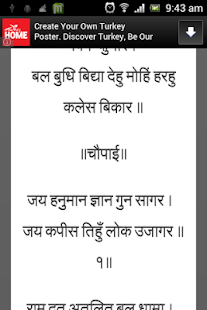 9:43 am
HOME
Create Your Own Turkey
Poster. Discover Turkey, Be Our
बल बुधि बिद्या देहु मोहिं हरहु
कलेस बिकार ॥
॥चौपाई॥
जय हनुमान ज्ञान गुन सागर ।
जय कपीस तिहुँ लोक उजागर ॥
१॥
राम दूत अतुलित बल धामा ।